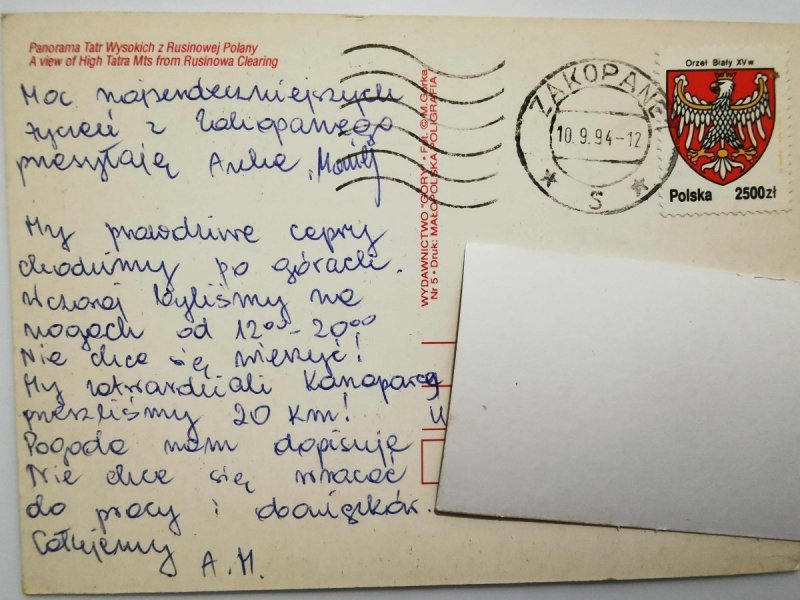 Panorama Tatr Wysokich z Rusinowej Polany
A view of High Tatra Mts from Rusinowa Clearing
Moc najserdeczniejszych
życzeń z Zakopanego
przesyłają Anka i
My prawdziwe cepry
chodzimy po górach.
Wczoraj byliśmy na
nogach od 12⁰⁰-20⁰⁰
Nie chce się wierzyć!
My zatwardziali
przeszliśmy 20 km!
Pogoda nam dopisuje
Nie chce się wracać
do pracy i obowiązków.
Całujemy
A.M.
WYDAWNICTWO "GÓRY" • Fot. © M. Górka
Nr 5 • Druk: MAŁOPOLSKA POLIGRAFIA
ZAKOPANE
10.9.94-12
* S *
Orzeł Biały XV w.
Polska 2500zł